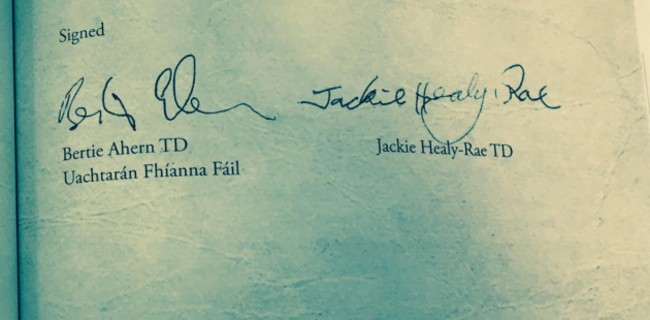 Signed
Bertie Ahern Jackie Healy-Rae
Bertie Ahern TD
Uachtarán Fhíanna Fáil
Jackie Healy-Rae TD